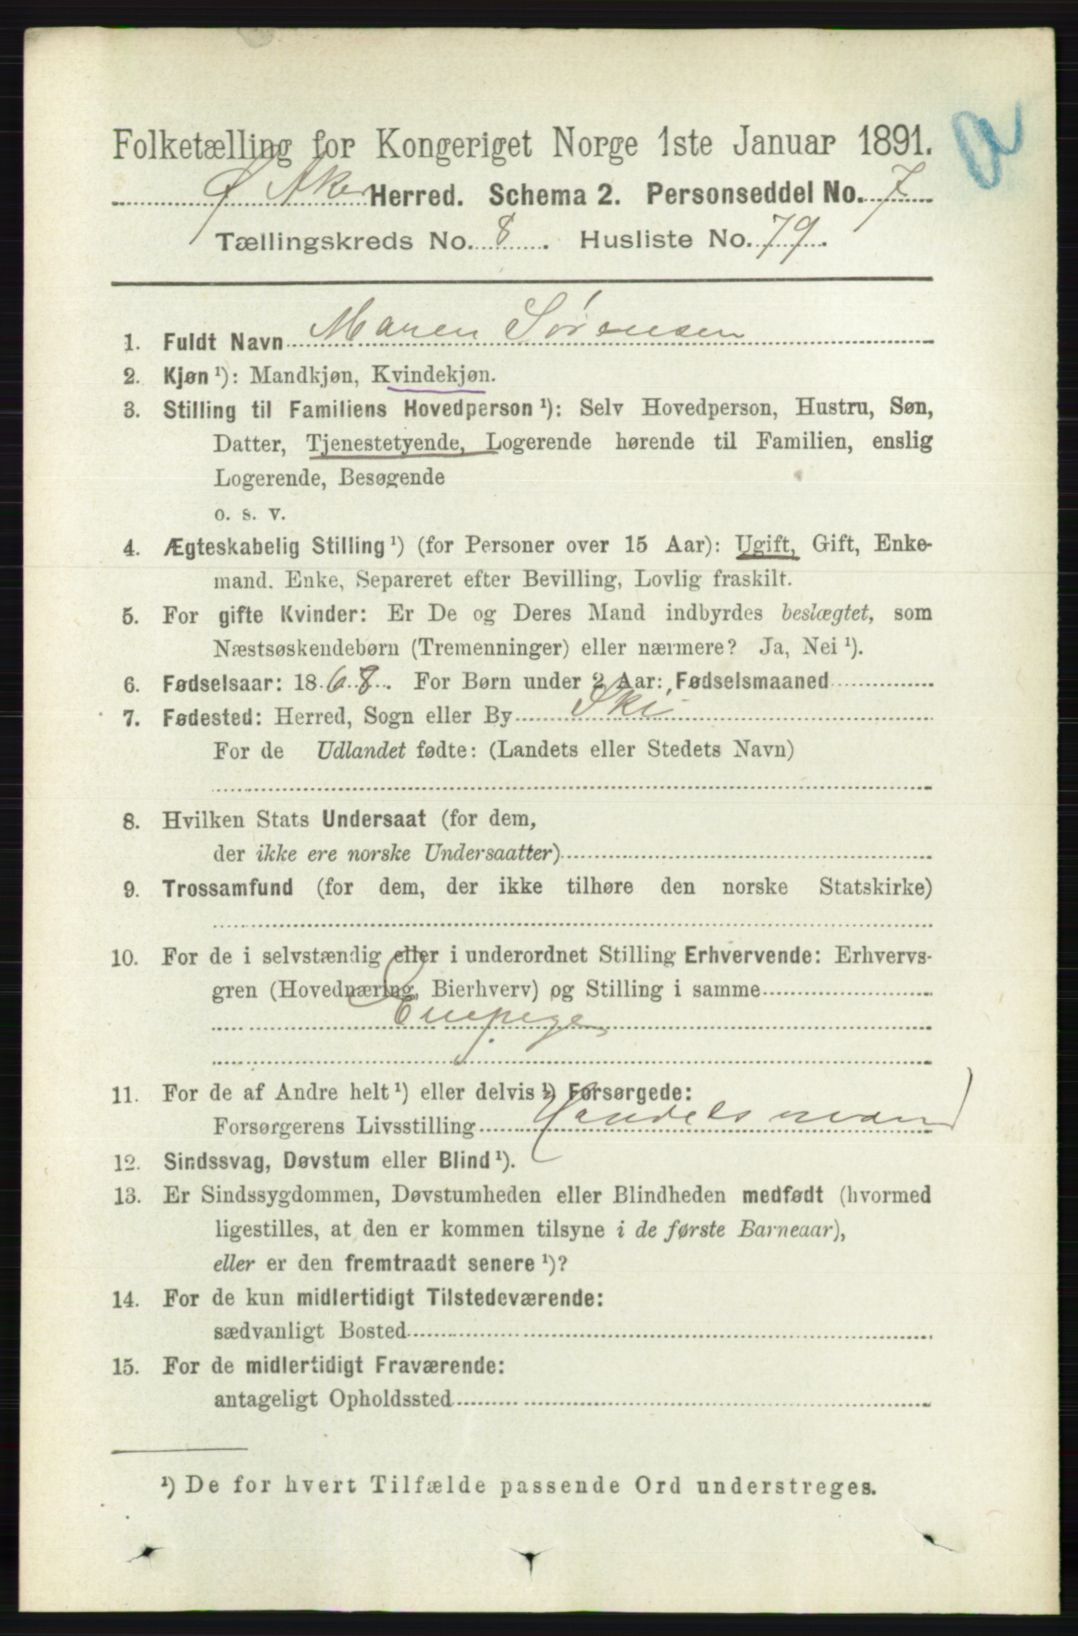 a
Folketælling for Kongeriget Norge 1ste Januar 1891.
Ø Aker Herred. Schema 2. Personseddel No. 7
Tællingskreds No. 8. Husliste No. 79.
1. Fuldt Navn Maren Sørensen
2. Kjøn ¹): Mandkjøn, Kvindekjøn.
3. Stilling til Familiens Hovedperson ¹): Selv Hovedperson, Hustru, Søn,
Datter, Tjenestetyende, Logerende hørende til Familien, enslig
Logerende, Besøgende
o. s. v.
4. Ægteskabelig Stilling ¹) (for Personer over 15 Aar): Ugift, Gift, Enke-
mand. Enke, Separeret efter Bevilling, Lovlig fraskilt.
5. For gifte Kvinder: Er De og Deres Mand indbyrdes beslægtet, som
Næstsøskendebørn (Tremenninger) eller nærmere? Ja, Nei ¹).
6. Fødselsaar: 1868. For Børn under 2 Aar: Fødselsmaaned
7. Fødested: Herred, Sogn eller By Ski
For de Udlandet fødte: (Landets eller Stedets Navn)
8. Hvilken Stats Undersaat (for dem,
der ikke ere norske Undersaatter)
9. Trossamfund (for dem, der ikke tilhøre den norske Statskirke)
10. For de i selvstændig eller i underordnet Stilling Erhvervende: Erhvervs-
gren (Hovednæring, Bierhverv) og Stilling i samme
Enepige
11. For de af Andre helt ¹) eller delvis ¹) Forsørgede:
Forsørgerens Livsstilling Handelsmand
12. Sindssvag, Døvstum eller Blind ¹).
13. Er Sindssygdommen, Døvstumheden eller Blindheden medfødt (hvormed
ligestilles, at den er kommen tilsyne i de første Barneaar),
eller er den fremtraadt senere ¹)?
14. For de kun midlertidigt Tilstedeværende:
sædvanligt Bosted
15. For de midlertidigt Fraværende:
antageligt Opholdssted
¹) De for hvert Tilfælde passende Ord understreges.